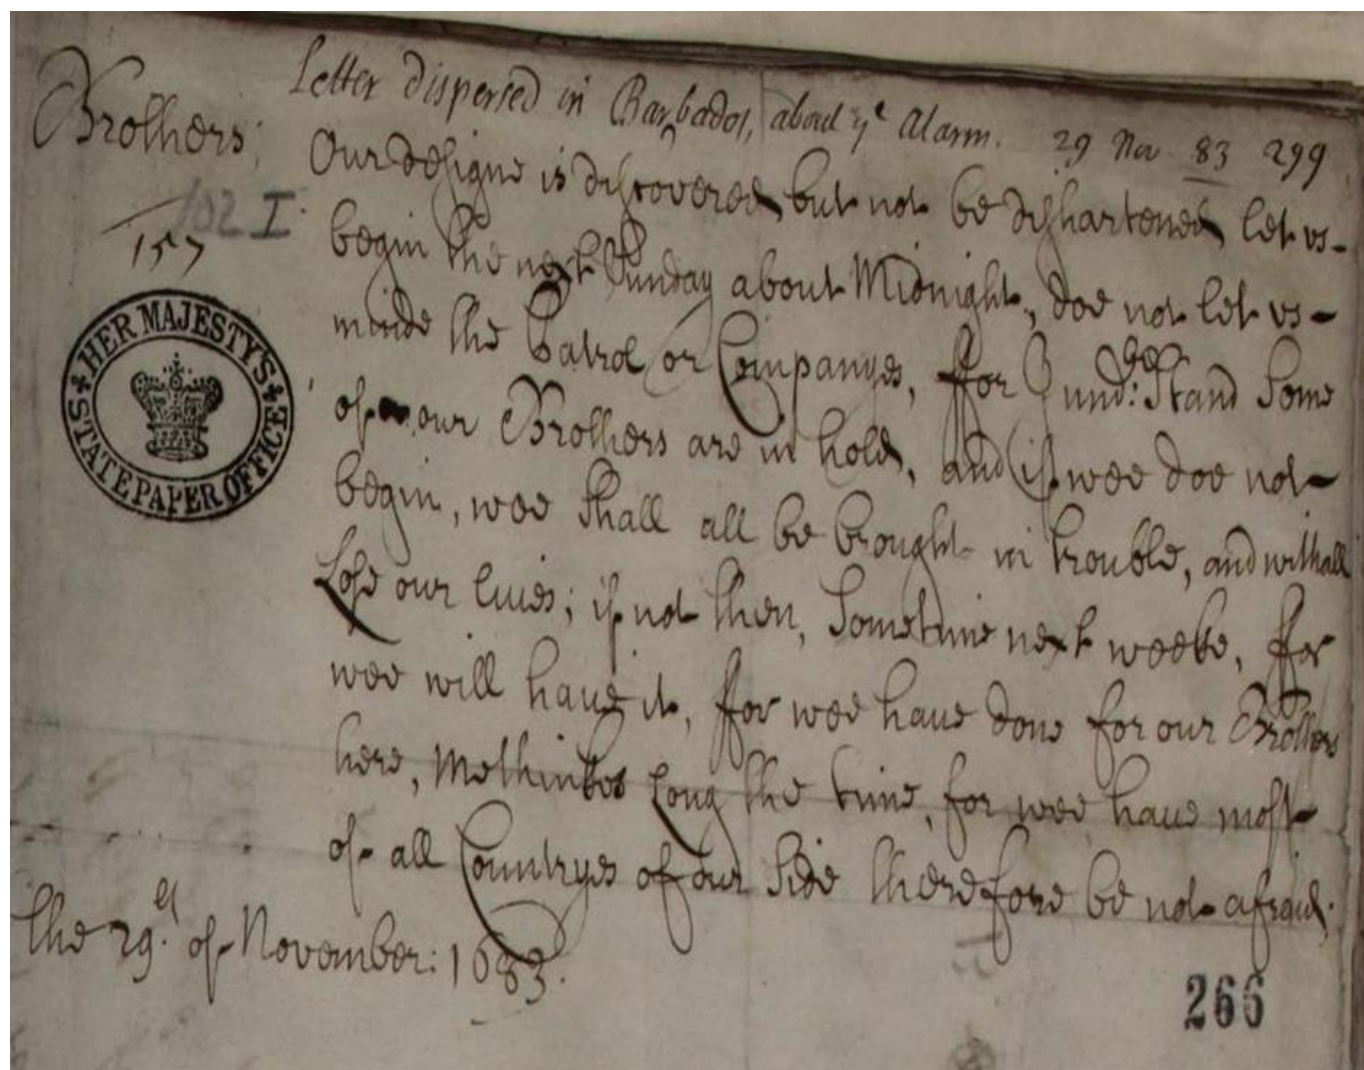 Letter dispersed in Barbados, about yᵉ Alarm. 29 Nov 83 299
Brothers;
Our designe is discovered but not be dishartened, let vs
begin the next Sunday about Midnight, doe not let vs
minde the Patrol or Companyes, ffor I und:stand some
of our Brothers are in hold, and if wee doe not
begin, wee shall all be brought in trouble, and withall
Lose our liues; if not then, sometime next weeke, ffor
wee will haue it, ffor wee haue done for our Brothers
here, Methinkes Long the time, for wee haue most
of all Countryes of our side therefore be not afraid.
the 29th of November: 1683.
102 I
157
HER MAJESTY'S
STATE PAPER OFFICE
266